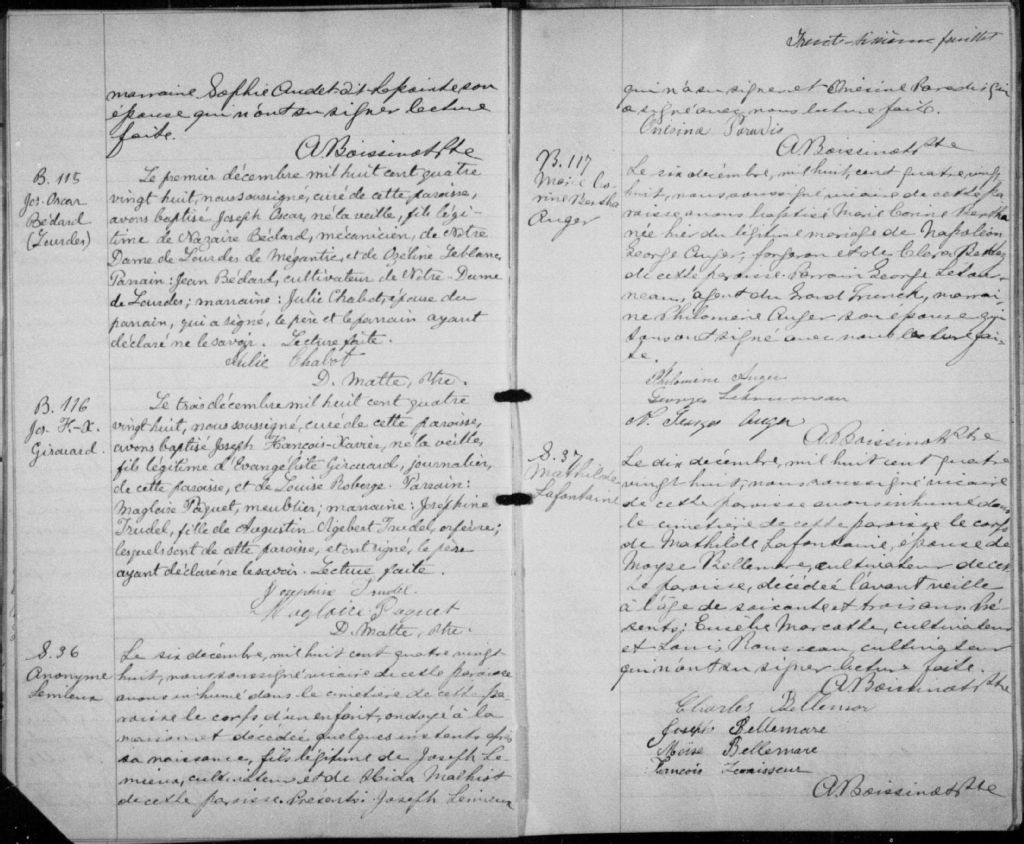 marraine Sophie Audet dit Lapointe son
épouse qui n'ont su signer lecture
faite.
A Boissinot Ptre
B. 115
Jos. Oscar
Bédard
(Lourdes)
Le premier décembre mil huit cent quatre
vingt huit, nous soussigné, curé de cette paroisse,
avons baptisé Joseph Oscar, né la veille, fils légi-
time de Nazaire Bédard, mécanicien, de Notre
Dame de Lourdes de Mégantic, et de Ozéline Leblanc,
Parrain: Jean Bédard, cultivateur de Notre-Dame
de Lourdes; marraine: Julie Chabot, épouse du
parrain, qui a signé, le père et le parrain ayant
déclaré ne le savoir. Lecture faite.
Julie Chabot
D. Matte, Ptre.
B. 116
Jos. F.-X.
Girouard.
Le trois décembre mil huit cent quatre
vingt huit, nous soussigné, curé de cette paroisse,
avons baptisé Joseph François-Xavier, né la veille,
fils légitime d'Evangéliste Girouard, journalier,
de cette paroisse, et de Louise Roberge. Parrain:
Magloire Paquet, meublier; marraine: Joséphine
Trudel, fille de Augustin Agebert Trudel, orfèvre;
lesquels sont de cette paroisse, et ont signé, le père
ayant déclaré ne le savoir. Lecture faite.
Joséphine Trudel
Magloire Paquet
D. Matte, Ptre.
S. 36
Anonyme
Lemieux
Le six décembre, mil huit cent quatre vingt
huit, nous soussigné vicaire de cette paroisse
avons inhumé dans le cimetière de cette pa-
roisse le corps d'un enfant, ondoyé à la
maison et décédé quelques instants après
sa naissance, fils légitime de Joseph Le-
mieux, cultivateur et de Mathiot
de cette paroisse. Présents: Joseph Lemieux
Trente-sixième feuillet
qui n'a su signer et Onésine Paradis qui
a signé avec nous lecture faite.
Onésina Paradis
A Boissinot Ptre
B. 117
Marie Co
rine Bertha
Auger
Le six décembre, mil huit, cent quatre, vingt
huit, nous soussigné vicaire de cette pa
roisse avons baptisé Marie Corine Bertha
née hier du légitime mariage de Napoléon
George Auger, forgeron et de Clara
de cette paroisse. Parrain George Letour-
neau, agent du Grand Trunck, marrai-
ne Philomène Auger son épouse qui
tous ont signé avec nous lecture fai-
te.
Philomène Auger
Georges Letourneau
N. Georges Auger
A Boissinot Ptre
S. 37
Mathilde
Lafontaine
Le dix décembre, mil huit cent quatre
vingt huit, nous soussigné vicaire
de cette paroisse avons inhumé dans
le cimetière de cette paroisse le corps
de Mathilde Lafontaine, épouse de
Moyse Bellemare, cultivateur de cet
te paroisse, décédée l'avant veille
à l'âge de soixante et trois ans. Pré-
sents: Eusèbe Marcotte, cultivateur
et Louis Rousseau, cultivateur
qui n'ont su signer lecture faite.
A Boissinot Ptre
Charles Bellemar
Joseph Bellemare
Moïse Bellemare
François
A. Boissinot Ptre